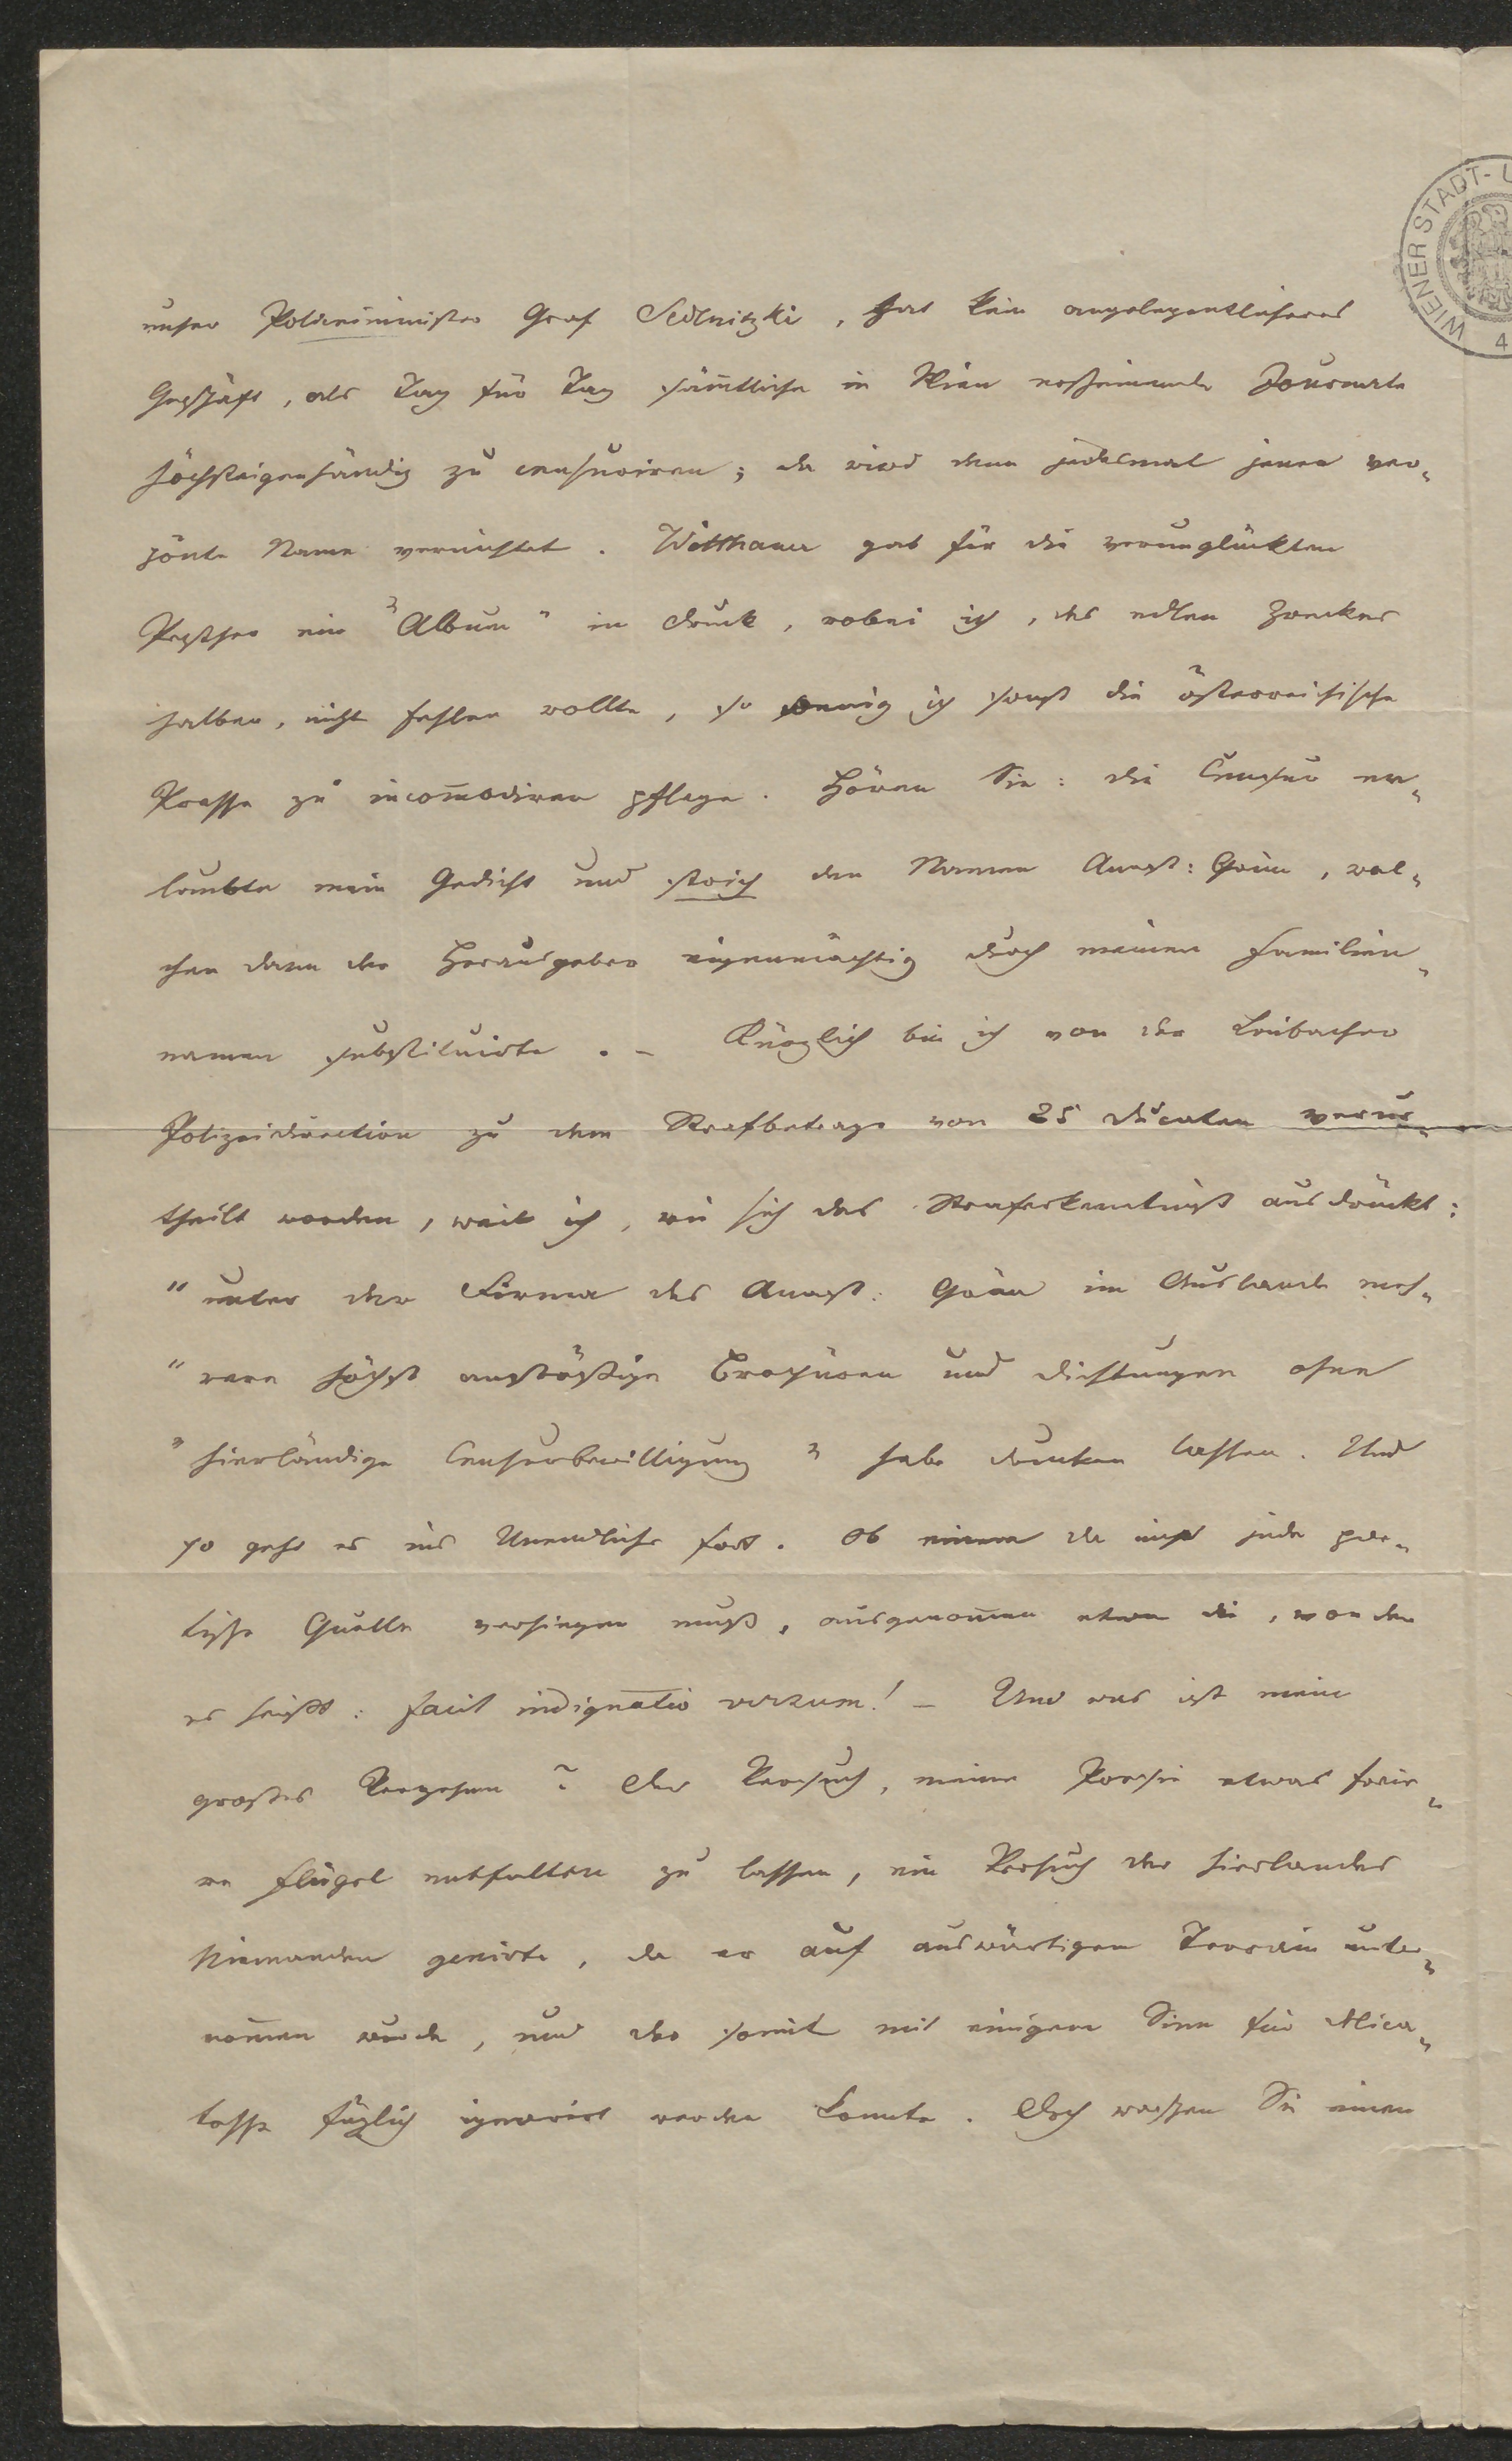 WIENER STADT- U
4
unser Polizeiminister Graf Sedlnitzki, hat kein angelegentlicheres
Geschäft, als Tag für Tag sämtliche in Wien erscheinende Journale
höchsteigenhändig zu censuriren; da wird denn jedesmal jener ver-
pönte Name vernichtet. Witthauer gab für die verunglückten
Pesther ein "Album" in Druck, wobei ich, des edlen Zweckes
halber, nicht fehlen wollte, so wenig ich sonst die österreichische
Presse zu incom̄odiren pflege. Hören Sie: die Censur er-
laubte mein Gedicht und strich den Namen Anast: Grün, wel-
chen dann der Herausgeber eigenmächtig durch meinen Familien-
namen substituirte. – Kürzlich bin ich von der Laibacher
Polizeidirection zu dem Strafbetrage von 25 Ducaten verur-
theilt worden, weil ich, wie sich das Straferkenntniß ausdrückt:
"unter der Firma des Anast: Grün im Auslande meh-
"rere höchst anstößige Broschüren und Dichtungen ohne
"hierländige Censurbewilligung" habe drucken lassen. Und
so geht es ins Unendliche fort. Ob einem da nicht jede poe-
tische Quelle versiegen muß, ausgenom̄en etwa die, von der
es heißt: facit indignatio versum! – Und was ist mein
großes Vergehen? Der Versuch, meine Poesie etwas freie-
re Flügel entfalten zu lassen, ein Versuch der hierlandes
Niemanden genirte, da er auf auswärtigem Terrain unter-
nom̄en wurde, und der somit mit einigem Sinn für Delica-
tesse füglich ignorirt werden konnte. Doch machen Sie einen